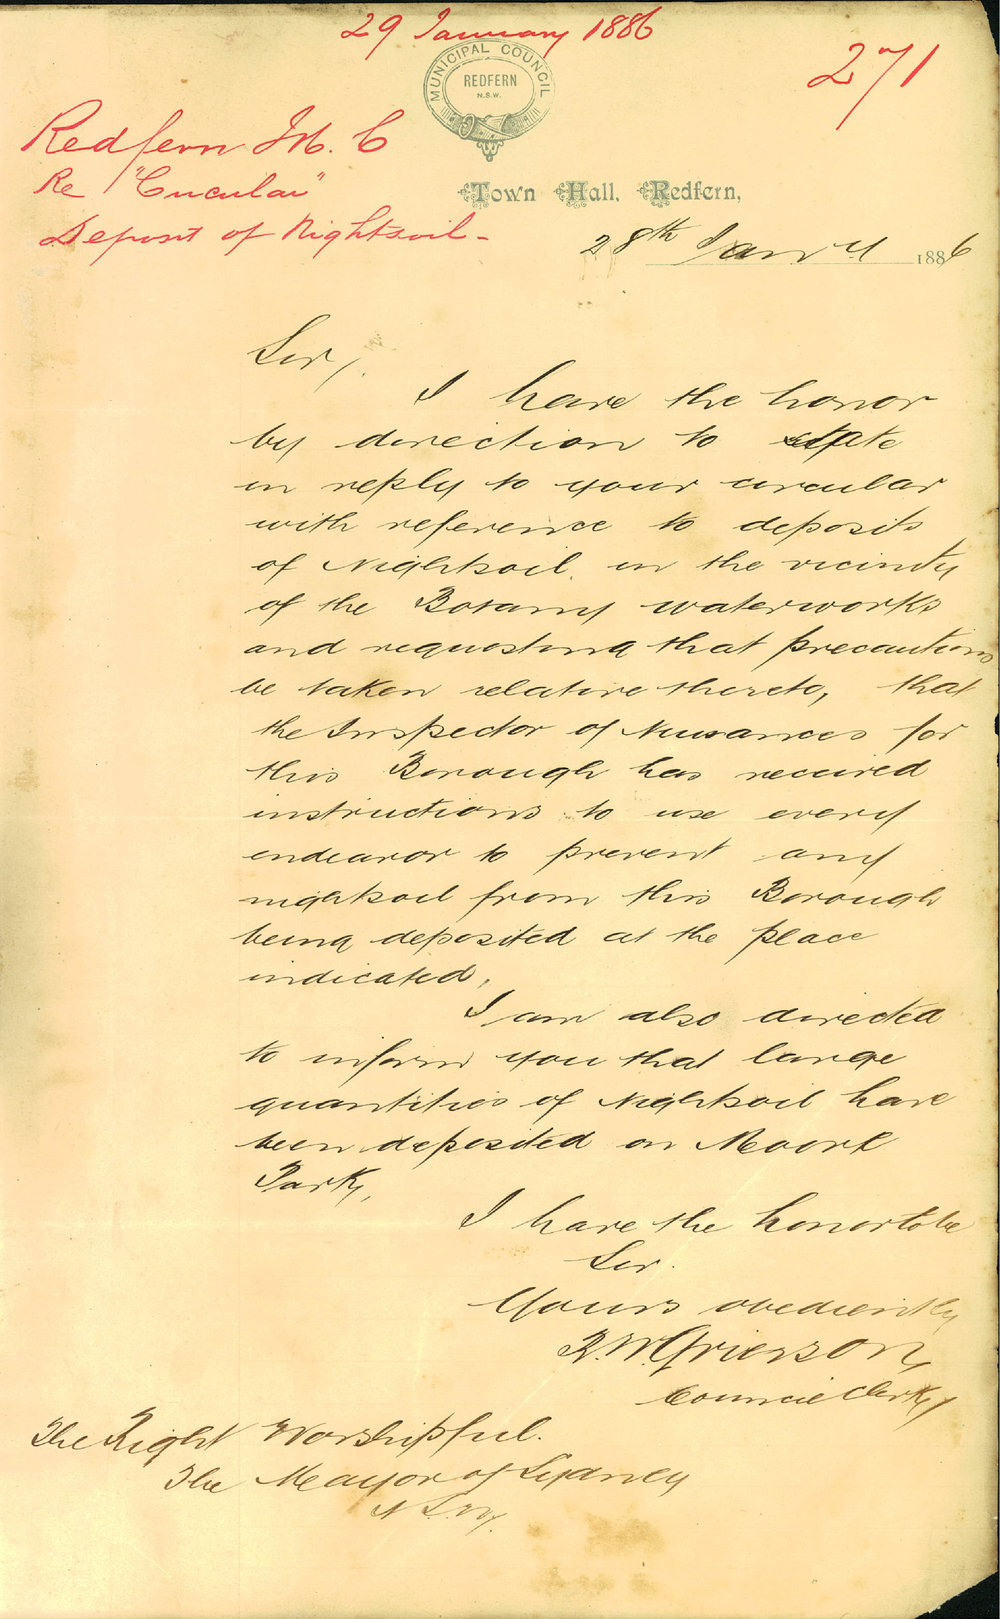 29 January 1886
271
MUNICIPAL COUNCIL
REDFERN
N.S.W.
Redfern M. C
Re "Circular"
Deposit of Nightsoil -
Town Hall, Redfern,
28th Jany 1886
Sir,
I have the honor
by direction to state
in reply to your circular
with reference to deposits
of Nightsoil in the vicinity
of the Botany waterworks
and requesting that precautions
be taken relative thereto, that
the Inspector of Nuisances for
this Borough has received
instructions to use every
endeavor to prevent any
nightsoil from this Borough
being deposited at the place
indicated,
I am also directed
to inform you that large
quantities of Nightsoil have
been deposited on Moore
Park,
I have the honor to be
Sir.
Yours obediently
Council Clerk
The Right Worshipful.
The Mayor of Sydney
N.S.W.